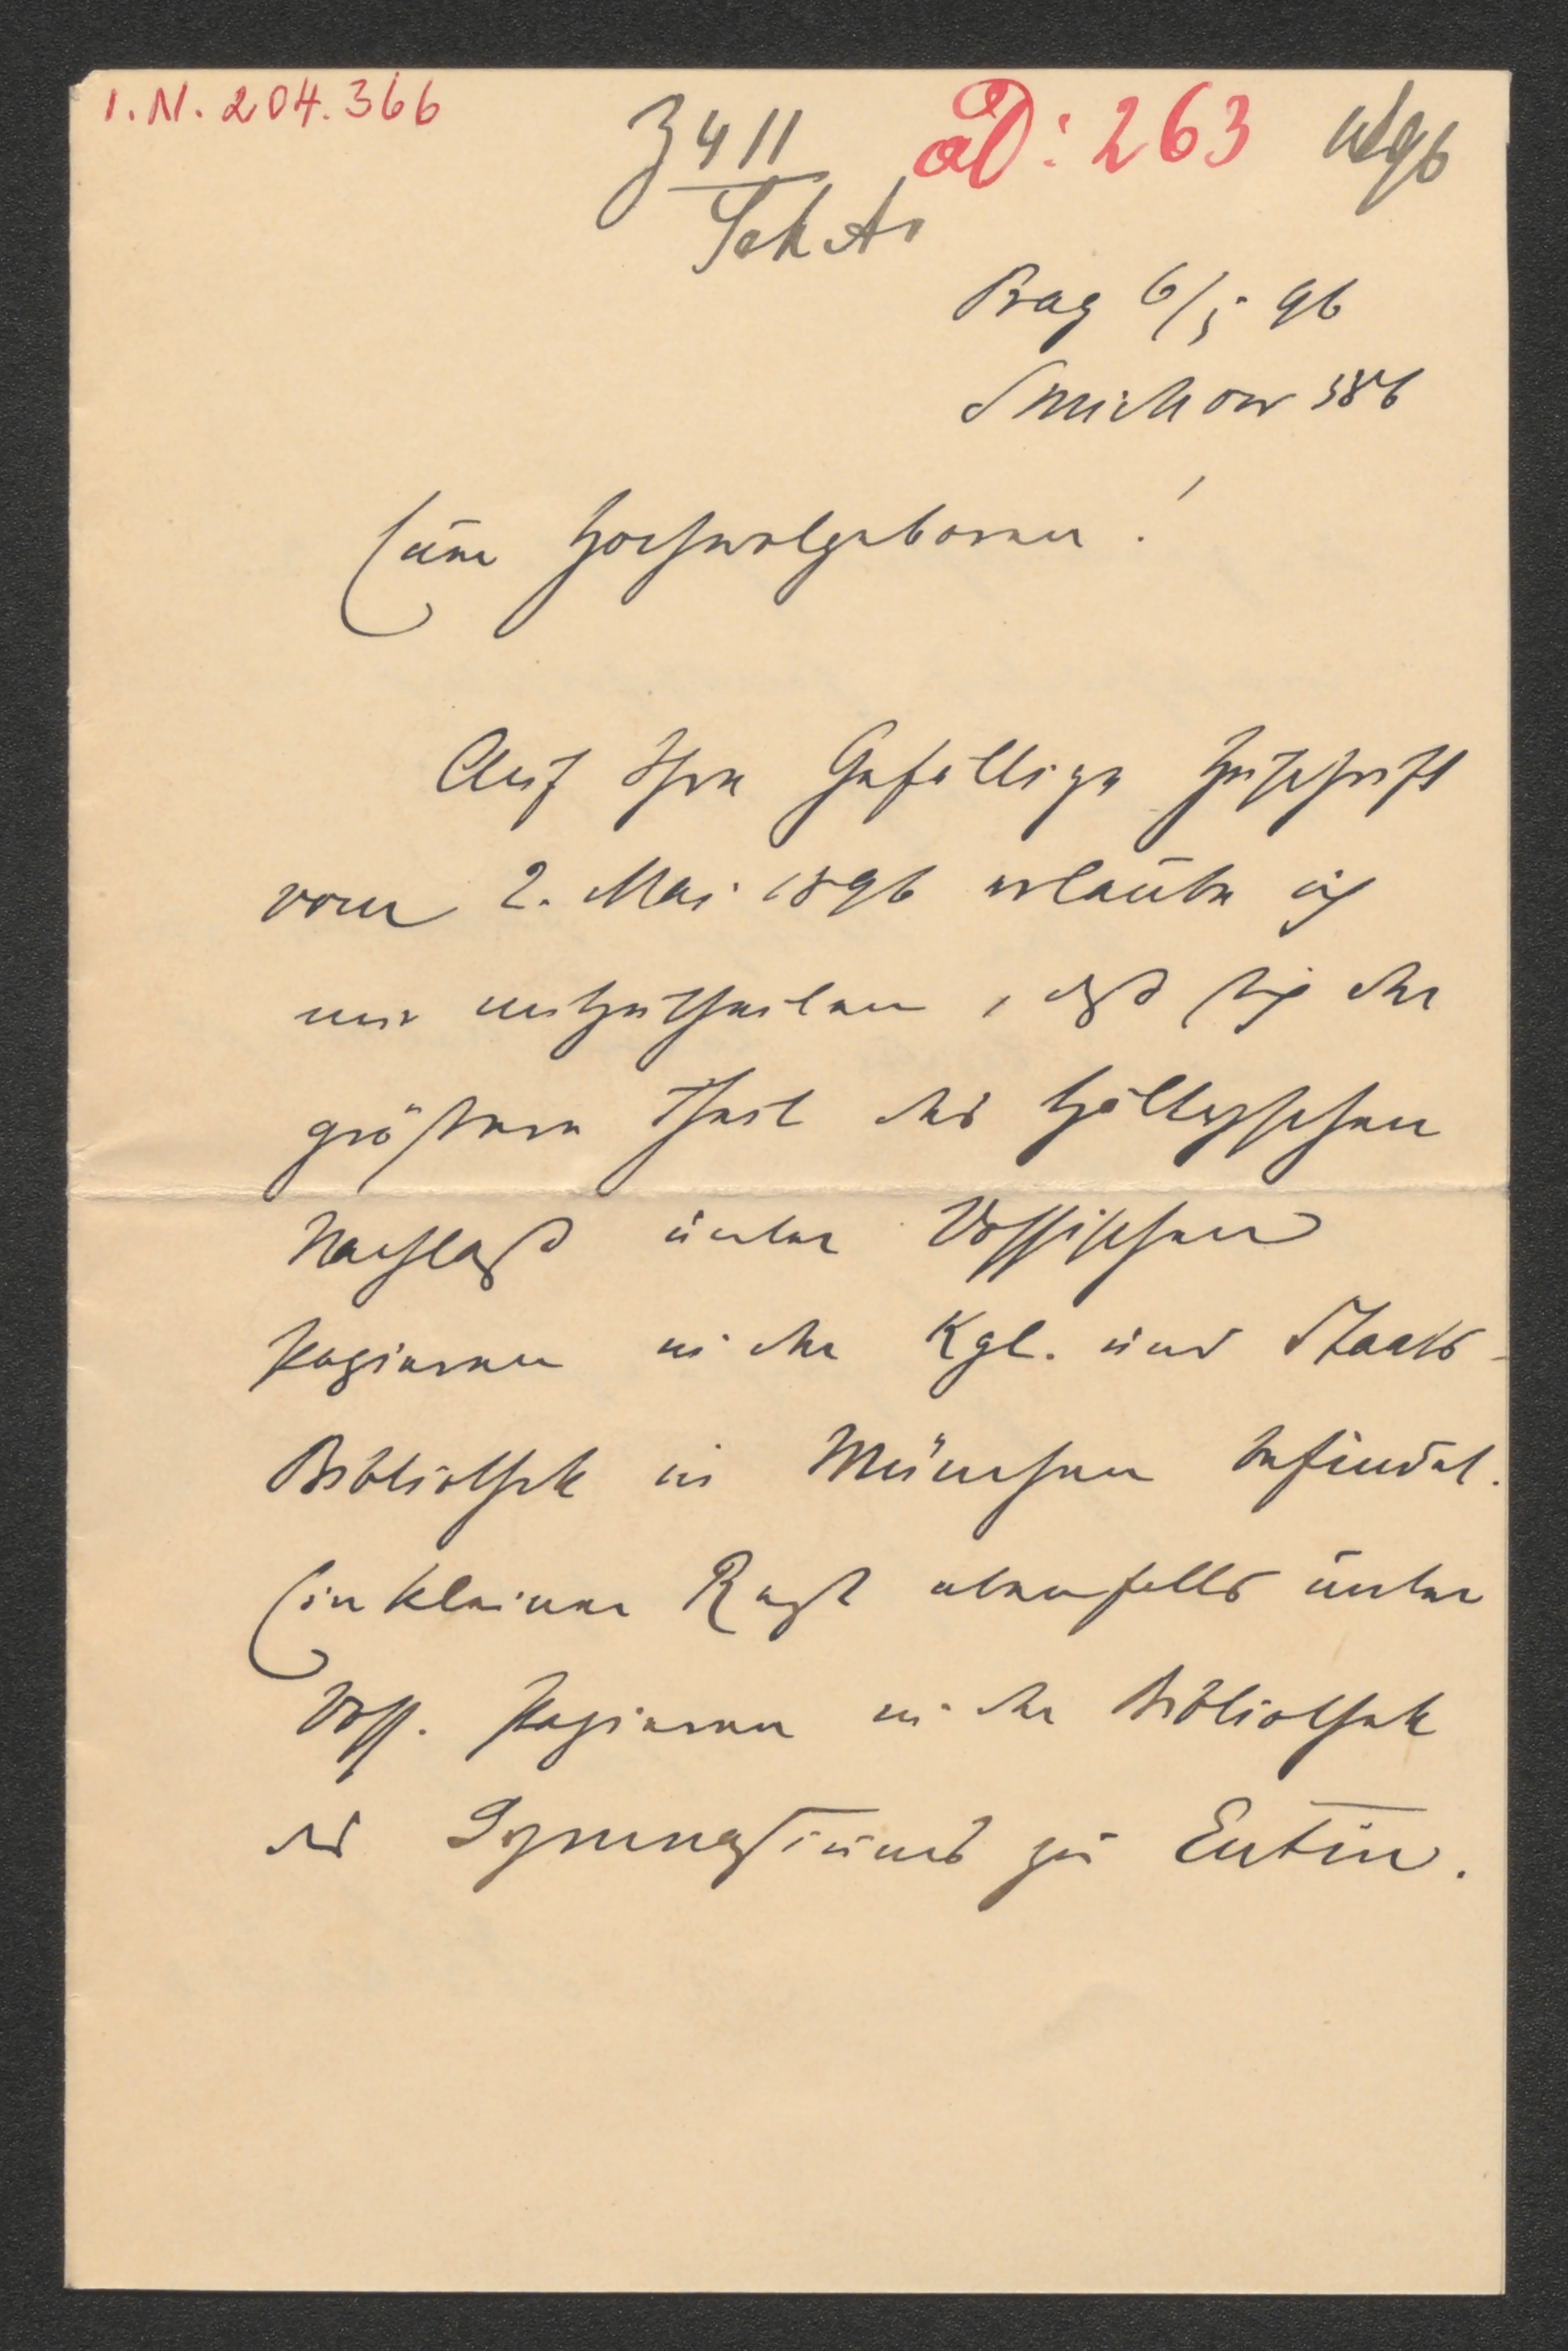 I.N. 204.366
Z 411 ad: 263
Prag 6/5 96
Smichow 586
Euer Hochwolgeboren!
Auf Ihre Gefällige Zuschrift
vom 2. Mai 1896 erlaube ich
mir mitzutheilen, daß sich der
größere Theil des Höltyschen
Nachlaß unter Vossischen
Papieren in der Kgl. und Staats-
Bibliothek in München befindet.
Ein kleiner Rest ebenfalls unter
Voss. Papieren in der Bibliothek
des Gymnasiums zu Eutin.